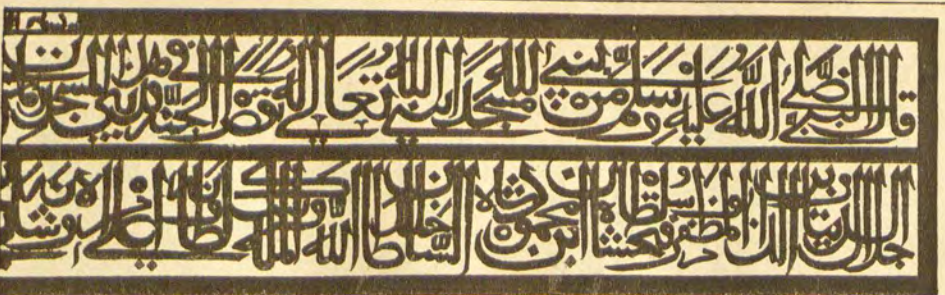 قال النبي صلى الله عليه وسلم من بنى لله مسجدا بنى الله تعالى له في الجنة بنى هذا المسجد
جلال الدنيا والدين ابو المظفر فتحشاه سلطان ابن محمودشاه السلطان خلد الله ملكه وسلطانه واعلى امره وشانه